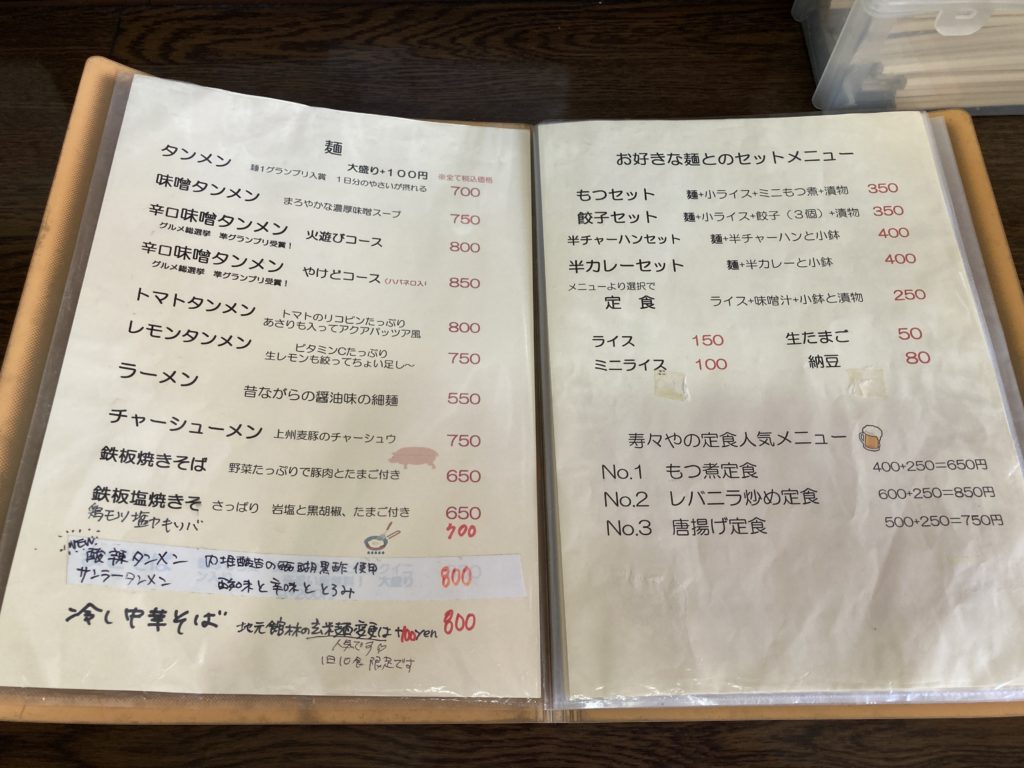 麺
大盛り+100円 ※全て税込価格
タンメン 麺1グランプリ入賞 1日分のやさいが摂れる 700
味噌タンメン まろやかな濃厚味噌スープ 750
辛口味噌タンメン 火遊びコース 800
グルメ総選挙 準グランプリ受賞!
辛口味噌タンメン やけどコース(ハバネロ入り 850
グルメ総選挙 準グランプリ受賞!
トマトタンメン トマトのリコピンたっぷり 800
あさりも入ってアクアパッツア風
レモンタンメン ビタミンCたっぷり 750
生レモンも絞ってちょい足し～
ラーメン 昔ながらの醤油味の細麺 550
チャーシューメン 上州麦豚のチャーシュウ 750
鉄板焼きそば 野菜たっぷりで豚肉とたまご付き 650
鉄板塩焼きそ さっぱり 岩塩と黒胡椒、たまご付き 650
鶏モツ塩ヤキソバ 700
NEW
酸辣タンメン 内堀醸造の臨醐黒酢使用 800
サンラータンメン 酸味と辛味ととろみ
冷し中華そば 地元館林の玄米麺変更は+100yen 800
人気です♡
1日10食限定です
お好きな麺とのセットメニュー
もつセット 麺+小ライス+ミニもつ煮+漬物 350
餃子セット 麺+小ライス+餃子(3個)+漬物 350
半チャーハンセット 麺+半チャーハンと小鉢 400
半カレーセット 麺+半カレーと小鉢 400
メニューより選択で
定食 ライス+味噌汁+小鉢と漬物 250
ライス 150 生たまご 50
ミニライス 100 納豆 80
寿々やの定食人気メニュー
No.1 もつ煮定食 400+250=650円
No.2 レバニラ炒め定食 600+250=850円
No.3 唐揚げ定食 500+250=750円